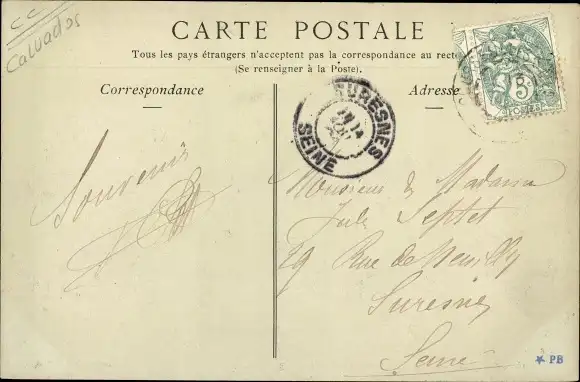 CC
Calvados
CARTE POSTALE
Tous les pays étrangers n'acceptent pas la correspondance au recto
(Se renseigner à la Poste).
Correspondance
Adresse
SURESNES
SEINE
5
Souvenir
Monsieur & Madame
Jules Septet
29 Rue de Neuilly
Suresnes
Seine
★ PB